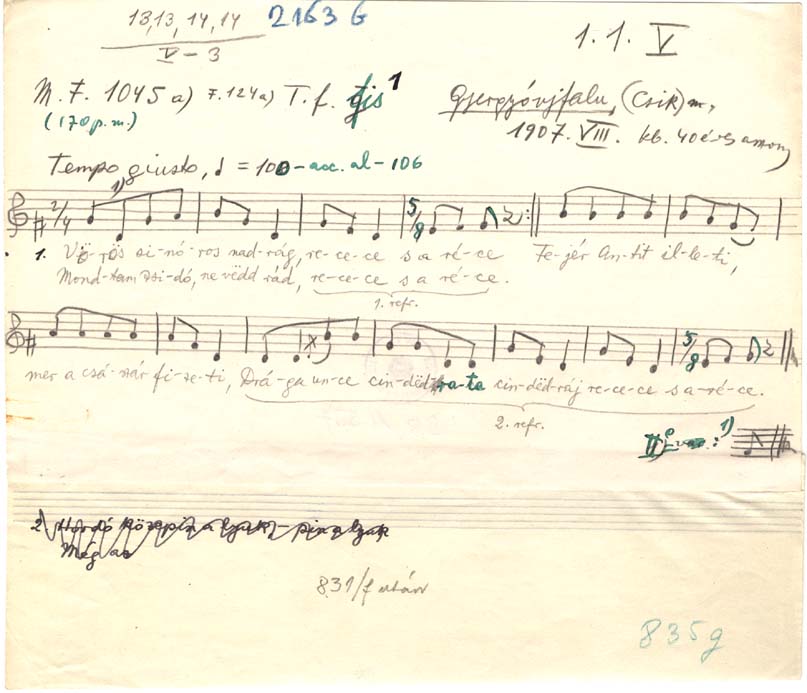 13, 13, 14, 14 2163 G
V – 3
1. 1. V
M. F. 1045 a) F. 124 a) T. f. fis 1
(170 p. m.)
Gyergyóújfalu, (Csík) m.,
1907. VIII. kb. 40 éves asszony
Tempo giusto, ♩ = 100 – acc. al – 106
1)
2/4 5/8
1. Vö-rös zi-nó-ros nad-rág, re-ce-ce s a ré-ce Fe-jér An-tit il-le-ti,
Mond-tam, zsi-dó, ne vëdd rád, re-ce-ce s a ré-ce.
1. refr.
5/8
mer a csá-szár fi-ze-ti, Drá-ga un-ce cin-dëd-ra-ta cin-dëd-ráj re-ce-ce s a-ré-ce.
2. refr.
var.: 1)
2. Hordó közepin
Még az
831/f után
835g